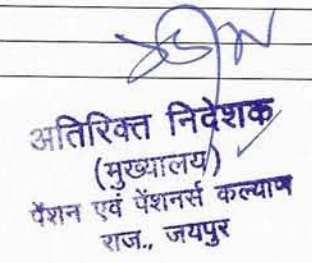 अतिरिक्त निदेशक
(मुख्यालय)
पेंशन एवं पेंशनर्स कल्याण
राज., जयपुर